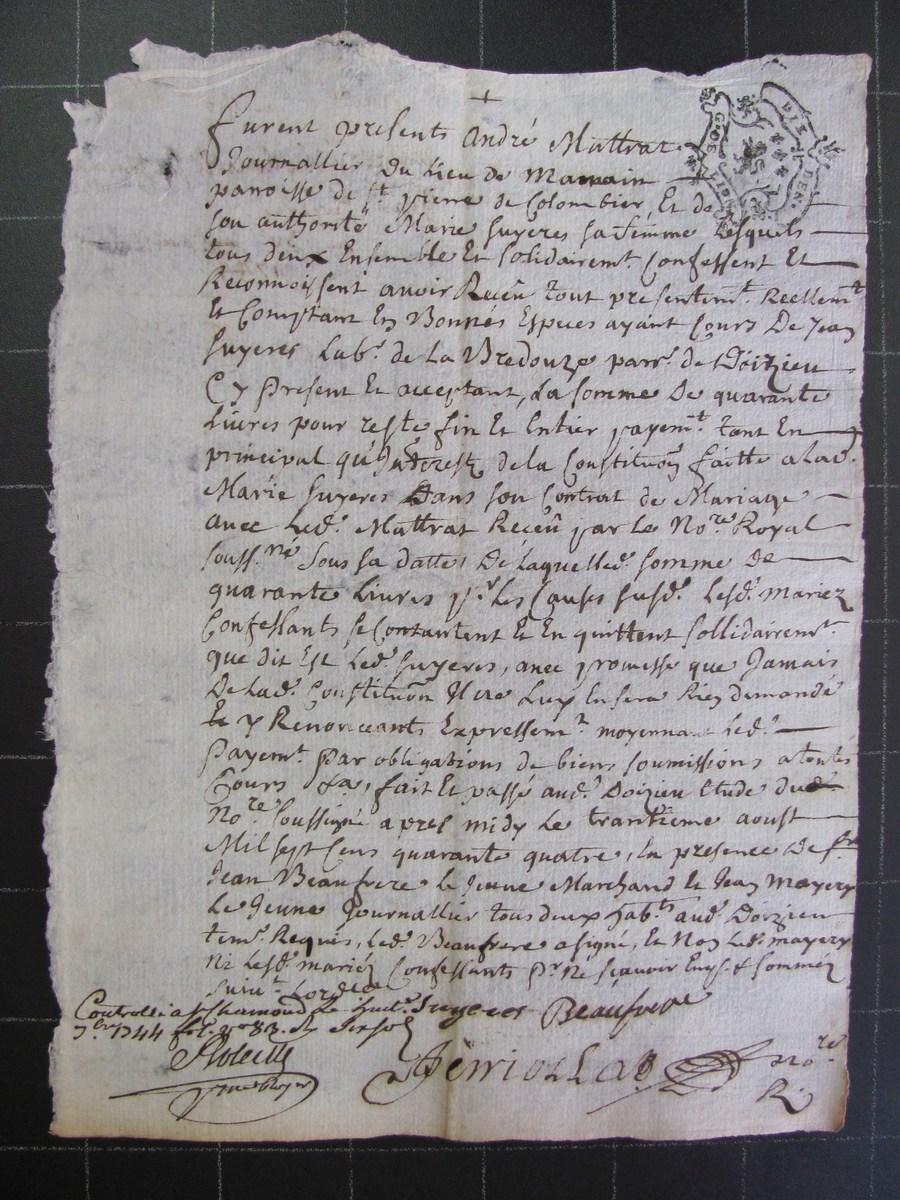 +
furent presents André Mattrat
Journallier Du Lieu de
paroisse de St. pierre de Colombier, Et de
son authorité Marie Suyeres sa femme Lesquels
tous deux Ensemble Et solidairemt. Confessent Et
Reconnoissent avoir Receu tout presentemt. Reellemt.
Et Comptant En Bonnes Especes ayant Cours De Jean
Suyeres Labr. de La Bredouze parr. de Doizieu
Cy Present Et acceptant, La somme De quarante
Livres pour reste fin Et Entier payemt. tant En
principal qu'Interest de la Constituõn faitte a Lad.
Marie Suyeres Dans son Contrat de Mariage
avec Led. Mattrat Receu par Le Nore. Royal
soussné. sous sa datte, De Laquelled. somme De
quarante Livres pr. Les Causes susd. Lesd. mariez
Confessants se Contantent Et En quittent sollidairemt.
que dit Est Led. Suyeres, avec promesse que Jamais
De Lad. Constituõn Luy En sera Rien demandé
y Renonceants Expressemt. moyennant Led.
payemt. Par obligations de biens soumissions a toutes
Cours &a, fait Et passé aud. Doizieu Etude dud.
Nore. soussigné apres midy Le trantieme aoust
Mil sept Cens quarante quatre, En presence De sr.
Jean Beaufrere le Jeune Marchand Et Jean mayery
Le Jeune Journallier tous deux habts. aud. Doizieu
tem. Requis, Led. Beaufrere a signé, Et Non Led. mayery
Ni Lesd. mariéz Confessants pr. Né sçavoir Enqs. & sommez
suivt. Lordce
Controllé a St. Chamond Le huit. Suyeres Beaufrere
7bre 1744 fol.
nore.
R.